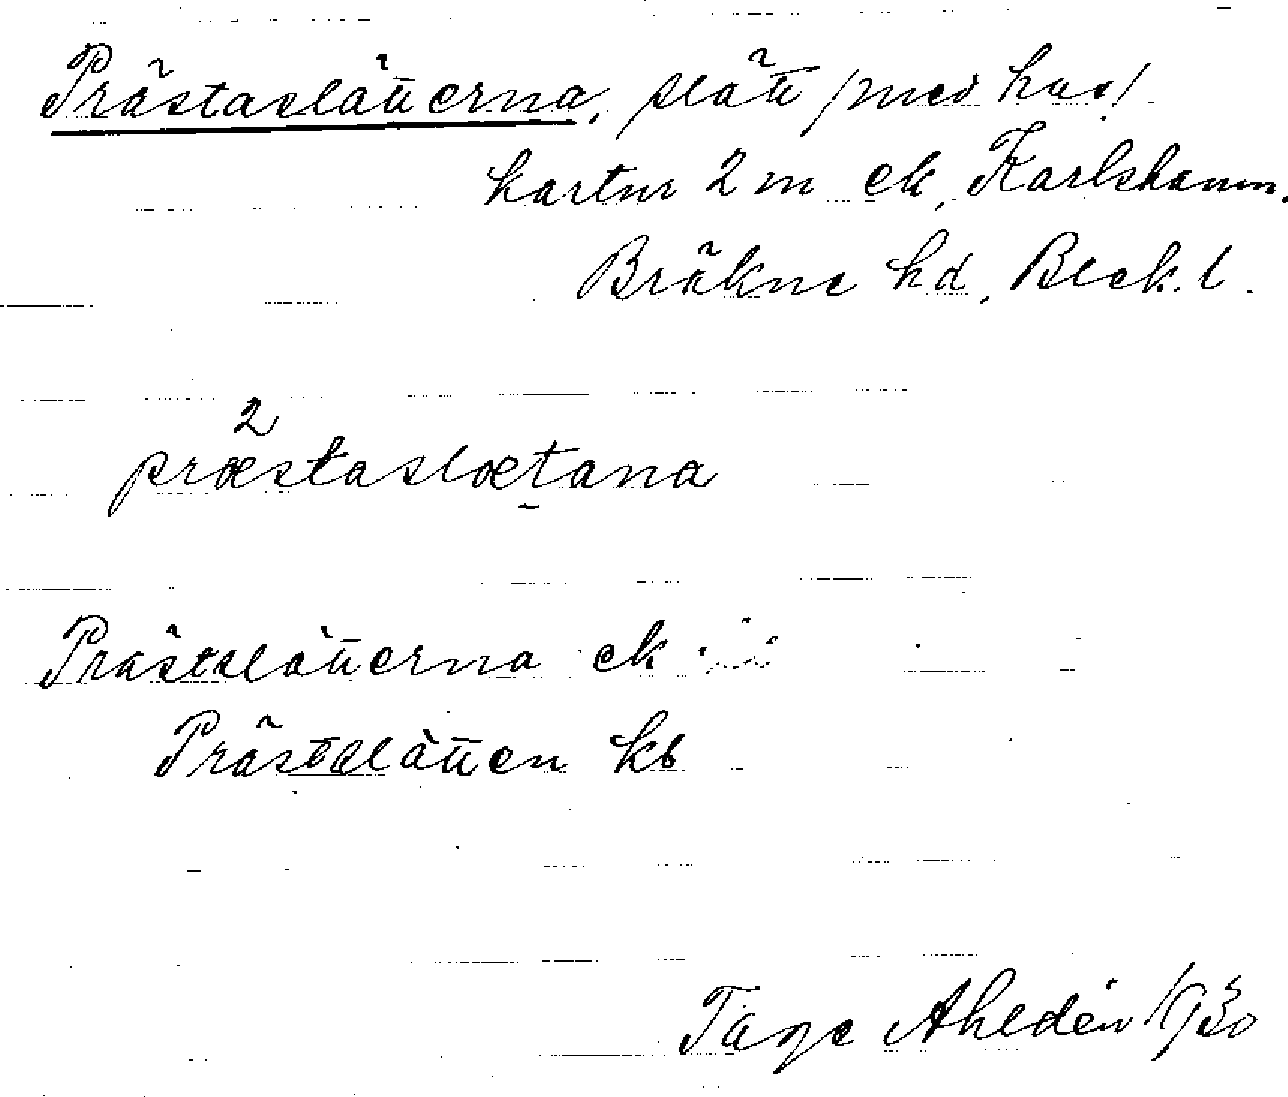 Prästaslätterna, slätt /med hus/
kartnr 2 m ek, Karlshamn,
Bräkne hd, Blek. l.
2
præstaslætana
Prästslätterna ek
Prästslätten kb
Tage Ahldén 1930